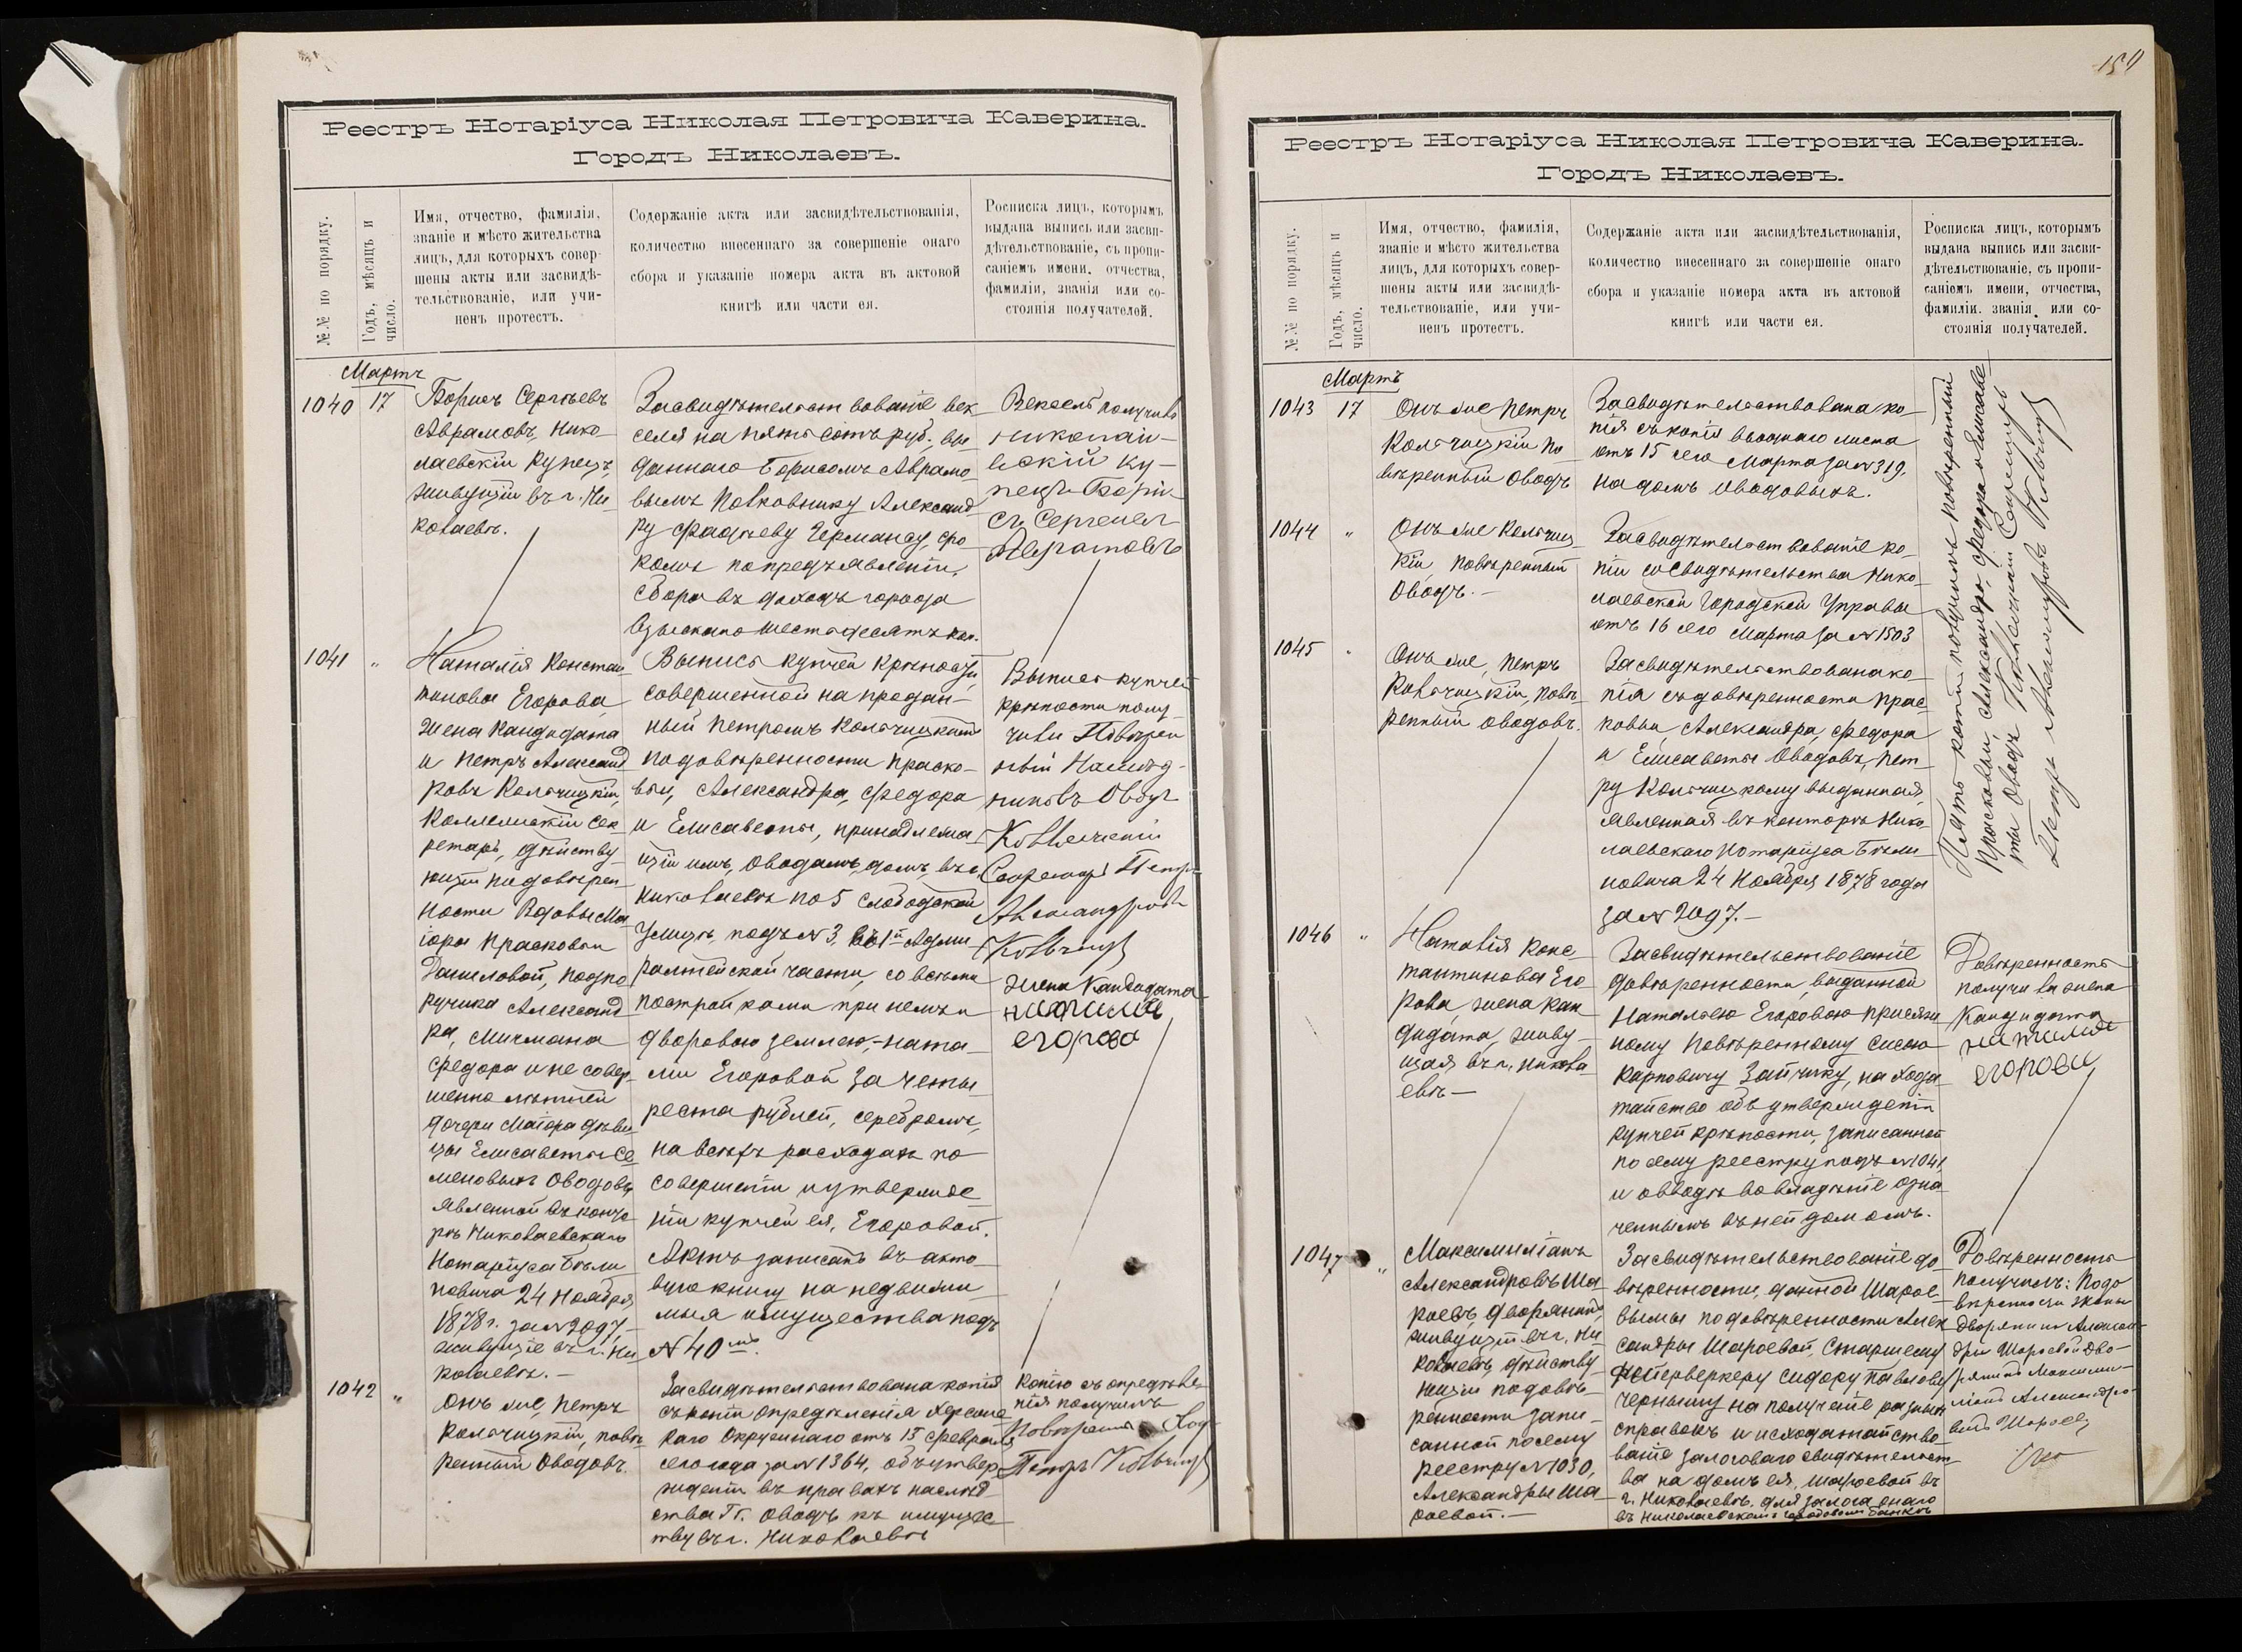 Реестръ Нотаріуса Николая Петровича Каверина.
Городъ Николаевъ.
№№ по порядку.
Годъ, мѣсяцъ и
число.
Имя, отчество, фамилія,
званіе и мѣсто жительства
лицъ, для которыхъ совер-
шены акты или засвидѣ-
тельствованіе, или учи-
ненъ протестъ.
Содержаніе акта или засвидѣтельствованія,
количество внесеннаго за совершеніе онаго
сбора и указаніе номера акта въ актовой
книгѣ или части ея.
Росписка лицъ, которымъ
выдана выпись или засви-
дѣтельствованіе, съ пропи-
саніемъ имени, отчества,
фамиліи, званія или со-
стоянія получателей.
Мартъ
1040 17
Борисъ Сергѣевъ
Аврамовъ, Нико-
лаевскій купецъ,
живущій въ г. Ни-
колаевѣ.
Засвидѣтельствованіе век-
селя на пятьсотъ руб. вы-
даннаго Борисомъ Аврамо-
вымъ Полковнику Александ-
ру Фадѣеву Германсу, сро-
комъ по предъявленіи.
Сбора въ доходъ города
взыскано шестьдесятъ коп.
Вексель получилъ
николаи-
вскій ку-
пецъ Бори-
съ Сергеиев
Аврамовъ
1041 "
Наталія Констан-
тинова Егорова,
жена Кандидата
и Петръ Александ-
ровъ Кольчицкій,
Коллежскій Сек-
ретарь, дѣйству-
ющій по довѣрен-
ности Вдовы Ма-
іора Прасковьи
Даниловой, Подпо-
ручика Александ-
ра, Мичмана
Федора и не совер-
шеннолѣтней
дочери Маіора дѣви-
цы Елисаветы Се-
меновыхъ Оводовъ,
явленной въ конто-
рѣ Николаевскаго
Нотаріуса Бѣли-
новича 24 Ноября
1878 г. за № 2097,
живущіе въ г. Ни-
колаевѣ.—
Выпись купчей крѣпости,
совершенной на продан-
ный Петромъ Кольчицкимъ
по довѣренности Праско-
вьи, Александра, Федора
и Елисаветы, принадлежа-
щій имъ, Оводамъ, домъ, въ г.
Николаевѣ по 5 Слободской
улицѣ, подъ № 3, въ 1й Адми-
ралтейской части, со всѣми
постройками при немъ и
дворовою землею,—Ната-
ліи Егоровой за четы-
реста рублей, серебромъ,
на всѣхъ расходахъ по
совершенію и утвержде-
нію купчей ея, Егоровой.
Актъ записанъ въ акто-
вую книгу на недвижи-
мыя имущества подъ
№ 40мъ.
Выпись купчей
крѣпости полу-
чили Повѣрен-
ный Наслѣд-
никовъ Оводъ
Коллежскій
Секретарь Петръ
Александровъ
Кольчицкій
жена Кандидата
наталия
егорова
1042 "
Онъ же, Петръ
Кольчицкій, повѣ-
ренный Оводовъ.
Засвидѣтельствована копія
съ копіи опредѣленія Херсонс-
каго Окружнаго отъ 15 Февраля
сего года за № 1364, объ утвер-
жденіи въ правахъ наслѣд-
ства Гг. Оводъ къ имущес-
тву въ г. Николаевѣ
Копію съ опредѣле-
нія получилъ
Повѣренный Овод
Петръ Кольчицкій
150
Реестръ Нотаріуса Николая Петровича Каверина.
Городъ Николаевъ.
№№ по порядку.
Годъ, мѣсяцъ и
число.
Имя, отчество, фамилія,
званіе и мѣсто жительства
лицъ, для которыхъ совер-
шены акты или засвидѣ-
тельствованіе, или учи-
ненъ протестъ.
Содержаніе акта или засвидѣтельствованія,
количество внесеннаго за совершеніе онаго
сбора и указаніе номера акта въ актовой
книгѣ или части ея.
Росписка лицъ, которымъ
выдана выпись или засви-
дѣтельствованіе, съ пропи-
саніемъ имени, отчества,
фамиліи, званія или со-
стоянія получателей.
Мартъ
1043 17
Онъ же Петръ
Кольчицкій по-
вѣренный Оводъ
Засвидѣтельствована ко-
пія съ копіи вводнаго листа
отъ 15 сего Марта за № 319.
на домъ Оводовыхъ.
1044 "
Онъ же Кольчиц-
кій, повѣренный
Оводъ.—
Засвидѣтельствованіе ко-
піи со свидѣтельства Нико-
лаевской Городской Управы
отъ 16 сего Марта за № 1503
1045 "
Онъ же, Петръ
Кольчицкій, повѣ-
ренный Оводовъ.
Засвидѣтельствована ко-
пія съ довѣренности Прас-
ковьи, Александра, Федора
и Елисаветы Оводовъ, Пет-
ру Кольчицкому выданная,
явленная въ конторѣ Нико-
лаевскаго Нотаріуса Бѣли-
новича 24 Ноября 1878 года
за № 2097.—
Пять копій получилъ повѣренный
Прасковьи, Александра, Федора и Елисаве-
ты Оводъ Коллежскій Секретарь
Петръ Александровъ Кольчицкій
1046 "
Наталія Конс-
тантинова Его-
рова, жена кан-
дидата, живу-
щая въ г. Никола-
евѣ—
Засвидѣтельствованіе
довѣренности, выданной
Наталіею Егоровою присяж-
ному Повѣренному Сысою
Карповичу Зайчику, на хода-
тайство объ утвержденіи
купчей крѣпости, записанной
по сему реестру подъ № 1041,
и о вводѣ во владѣніе озна-
ченнымъ въ ней домомъ.
Довѣренность
получила жена
Кандидата
наталия
егорова
1047 "
Максимиліанъ
Александровъ Ша-
роевъ, дворянинъ,
живущій въ г. Ни-
колаевѣ, дѣйству-
ющій по довѣ-
ренности запи-
санной по сему
реестру № 1030,
Александры Ша-
роевой.—
Засвидѣтельствованіе до-
вѣренности, данной Шарое-
вымъ по довѣренности Алек-
сандры Шароевой, Старшему
Фейерверкеру Сидору Павлову
Черныху на полученіе разныхъ
справокъ и исходатайство-
ваніе залоговаго свидѣтельст-
ва на домъ ея, Шароевой въ
г. Николаевѣ, для залога онаго
въ Николаевскомъ Городовомъ Банкѣ
Довѣренность
получилъ: По до-
вѣренности жены
дворянина Алексан-
дры Шароевой дво-
рянинъ Максими-
ліанъ Александро-
вичъ Шароевъ